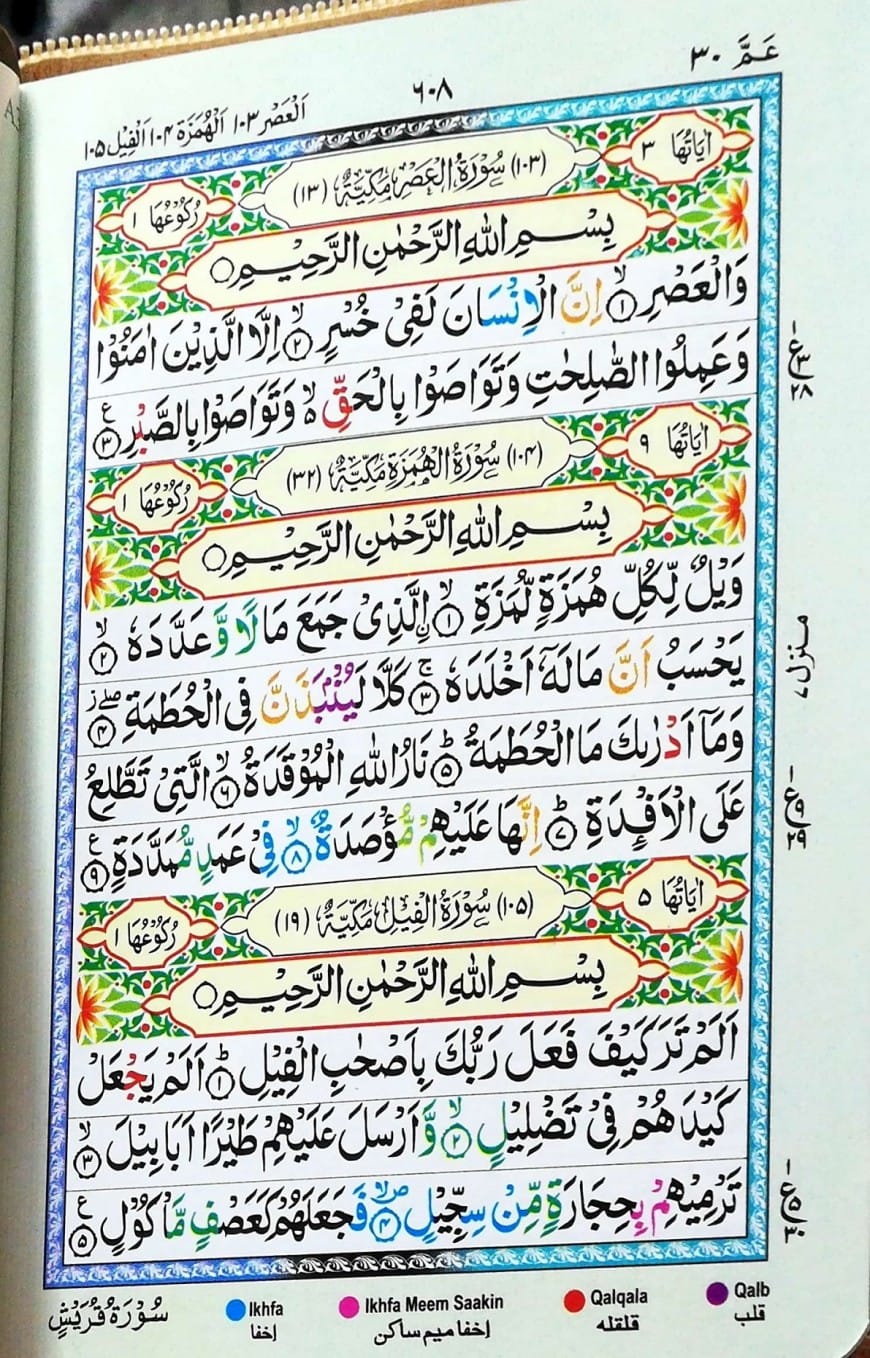 عَـمَّ ٣٠
٦٠٨
اَلْعَصْر ١٠٣ اَلْهُمَزَة ١٠٤ اَلْفِيْل ١٠٥
اٰيَاتُهَا ٣
(١٠٣) سُوْرَةُ الْعَصْرِ مَكِّيَّةٌ (١٣)
رُكُوْعُهَا ١
بِسْــمِ اللّٰهِ الرَّحْمٰنِ الرَّحِيْــمِ ۝
وَالْعَصْرِ ۙ‏﴿۱﴾ اِنَّ الْاِنْسَانَ لَفِىْ خُسْرٍ ۙ‏﴿۲﴾ اِلَّا الَّذِيْنَ اٰمَنُوْا
وَعَمِلُوا الصّٰلِحٰتِ وَتَوَاصَوْا بِالْحَقِّ ۙ۬ وَتَوَاصَوْا بِالصَّبْرِ ﴿۳﴾ ع
اٰيَاتُهَا ٩
(١٠٤) سُوْرَةُ الْهُمَزَةِ مَكِّيَّةٌ (٣٢)
رُكُوْعُهَا ١
بِسْــمِ اللّٰهِ الرَّحْمٰنِ الرَّحِيْــمِ ۝
وَيْلٌ لِّكُلِّ هُمَزَةٍ لُّمَزَةِ ۙ‏﴿۱﴾ اۨلَّذِىْ جَمَعَ مَالًا وَّعَدَّدَهٗ ۙ‏﴿۲﴾
يَحْسَبُ اَنَّ مَالَهٗۤ اَخْلَدَهٗ ۚ‏﴿۳﴾ كَلَّا لَيُنْۢبَذَنَّ فِى الْحُطَمَةِ ۖ﴿۴﴾
وَمَاۤ اَدْرٰٮكَ مَا الْحُطَمَةُ ؕ‏﴿۵﴾ نَارُ اللّٰهِ الْمُوْقَدَةُ ۙ‏﴿۶﴾ الَّتِىْ تَطَّلِعُ
عَلَى الْاَفْـِٕدَةِ ؕ‏﴿۷﴾ اِنَّهَا عَلَيْهِمْ مُّؤْصَدَةٌ ۙ‏﴿۸﴾ فِىْ عَمَدٍ مُّمَدَّدَةٍ ﴿۹﴾ ع
اٰيَاتُهَا ٥
(١٠٥) سُوْرَةُ الْفِيْلِ مَكِّيَّةٌ (١٩)
رُكُوْعُهَا ١
بِسْــمِ اللّٰهِ الرَّحْمٰنِ الرَّحِيْــمِ ۝
اَلَمْ تَرَ كَيْفَ فَعَلَ رَبُّكَ بِاَصْحٰبِ الْفِيْلِ ؕ‏﴿۱﴾ اَلَمْ يَجْعَلْ
كَيْدَهُمْ فِىْ تَضْلِيْلٍ ۙ‏﴿۲﴾ وَّاَرْسَلَ عَلَيْهِمْ طَيْرًا اَبَابِيْلَ ۙ‏﴿۳﴾
تَرْمِيْهِمْ بِحِجَارَةٍ مِّنْ سِجِّيْلٍ ۪ۙ‏﴿۴﴾ فَجَعَلَهُمْ كَعَصْفٍ مَّاْكُوْلٍ ﴿۵﴾ ع
ع ٣ ٢٨
منزل ٧
ع ٩ ٢٩
ع ٥ ٣٠
سُوْرَةُ قُرَيْشٍ
Ikhfa إخفا
Ikhfa Meem Saakin إخفا میم ساکن
Qalqala قلقله
Qalb قلب